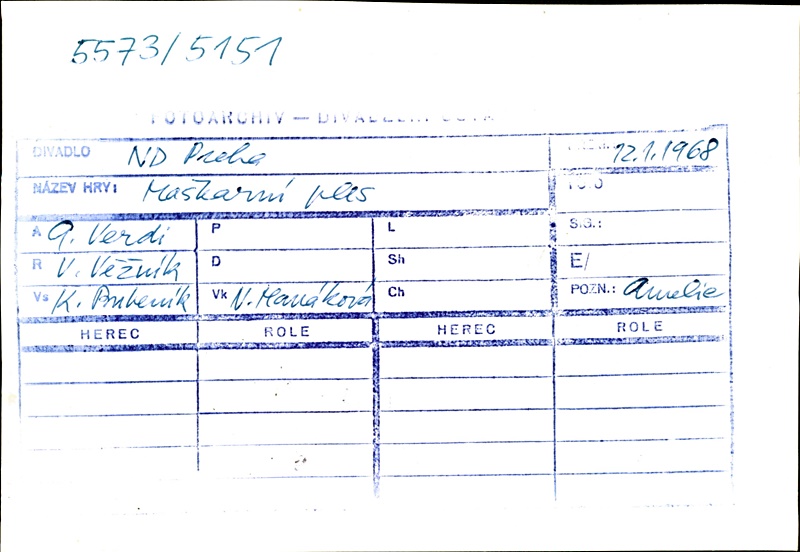 5573/5151
FOTOARCHIV — DIVADELNÍ
DIVADLO ND Praha 12.1.1968
NÁZEV HRY: Maškarní ples FOTO
A G. Verdi P L SIG.:
R V. Věžník D Sh E/
Vs K. Bubeník Vk N. Hanáková Ch POZN.: Amelie
HEREC ROLE HEREC ROLE